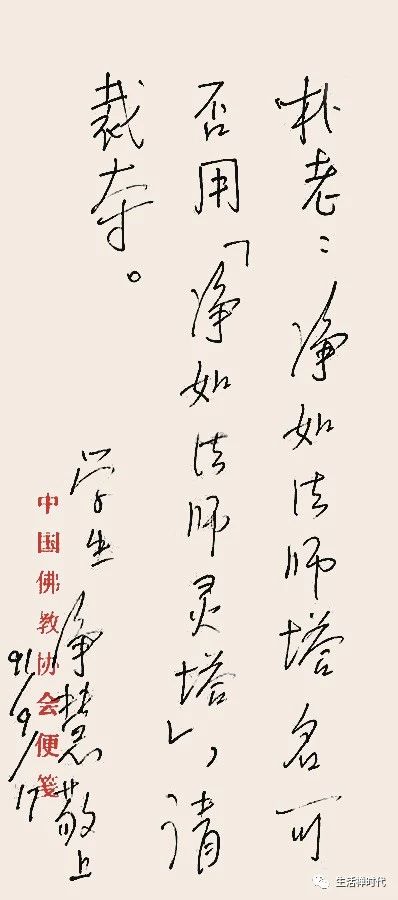 朴老：净如法师塔名可
否用「净如法师灵塔」，请
裁夺。
学生 净慧敬上
91/9/17
中国佛教协会便笺
生活禅时代